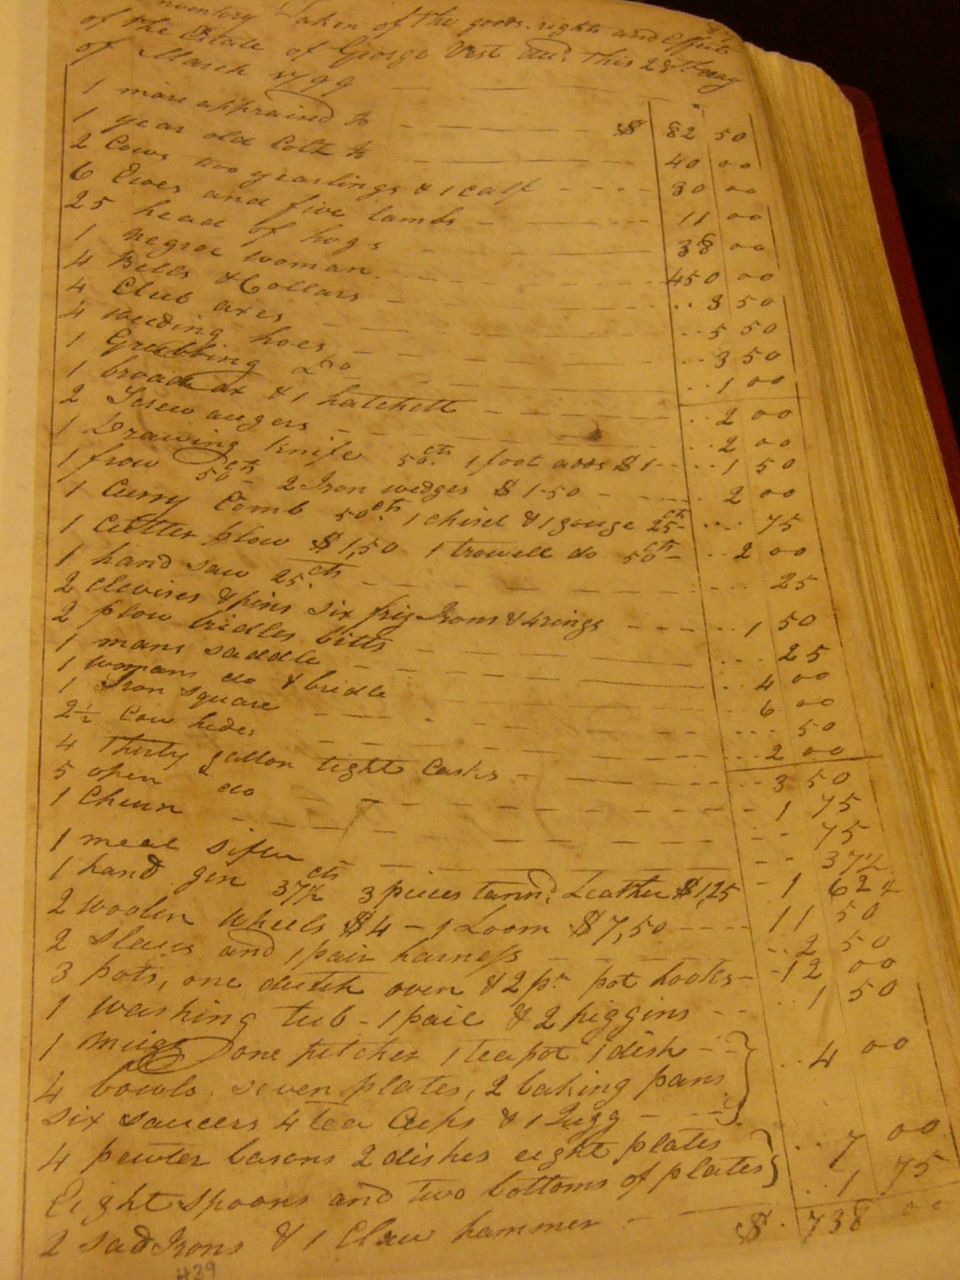 Inventory Taken of the goods rights and effects
of the Estate of George Vest decd. this 28th day
of March 1799
1 mare appraised to — $ 82 50
1 year old Colt to — 40 00
2 Cows two yearlings & 1 calf — 30 00
6 Ewes and five lambs — 11 00
25 head of hogs — 38 00
1 negroe woman — 450 00
4 Bells & Collars — 3 50
4 Club axes — 5 50
4 weeding hoes — 3 50
1 Grubbing Do — 1 00
1 broad ax & 1 hatchett — 2 00
2 Screw augers — 2 00
1 Drawing knife 50cts 1 foot adds $1 — 1 50
1 frow 50cts 2 Iron wedges $1-50 — 2 00
1 Curry Comb 50cts 1 chisel & 1 gouge 25cts — 75
1 Cutter plow $1,50 1 trowell do 50cts — 2 00
1 hand saw 25cts — 25
2 Clevises & pins six frig Irons & 4 rings — 1 50
2 plow bridles bitts — 25
1 mans saddle — 4 00
1 womans do & bridle — 6 00
1 Iron square — 50
2½ Cow hides — 2 00
4 Thirty gallon tight casks — 3 50
5 open do — 1 75
1 Churn — 75
1 meal sifter — 37½
1 hand gin 37½cts 3 pieces tannd. Leather $1,25 — 1 62½
2 woolen wheels $4 — 1 Loom $7,50 — 11 50
2 Slaies and 1 pair harness — 2 50
3 pots, one dutch oven & 2 pr pot hooks — 12 00
1 washing tub — 1 pail & 2 piggins — 1 50
1 mugg one pitcher 1 teapot 1 dish —
4 bowls seven plates, 2 baking pans } 4 00
six saucers 4 tea Cups & 1 Jugg —
4 pewter basons 2 dishes eight plates
Eight spoons and two bottoms of plates } 7 00
2 sad Irons & 1 Claw hammer — 1 75
$ 738 00
439